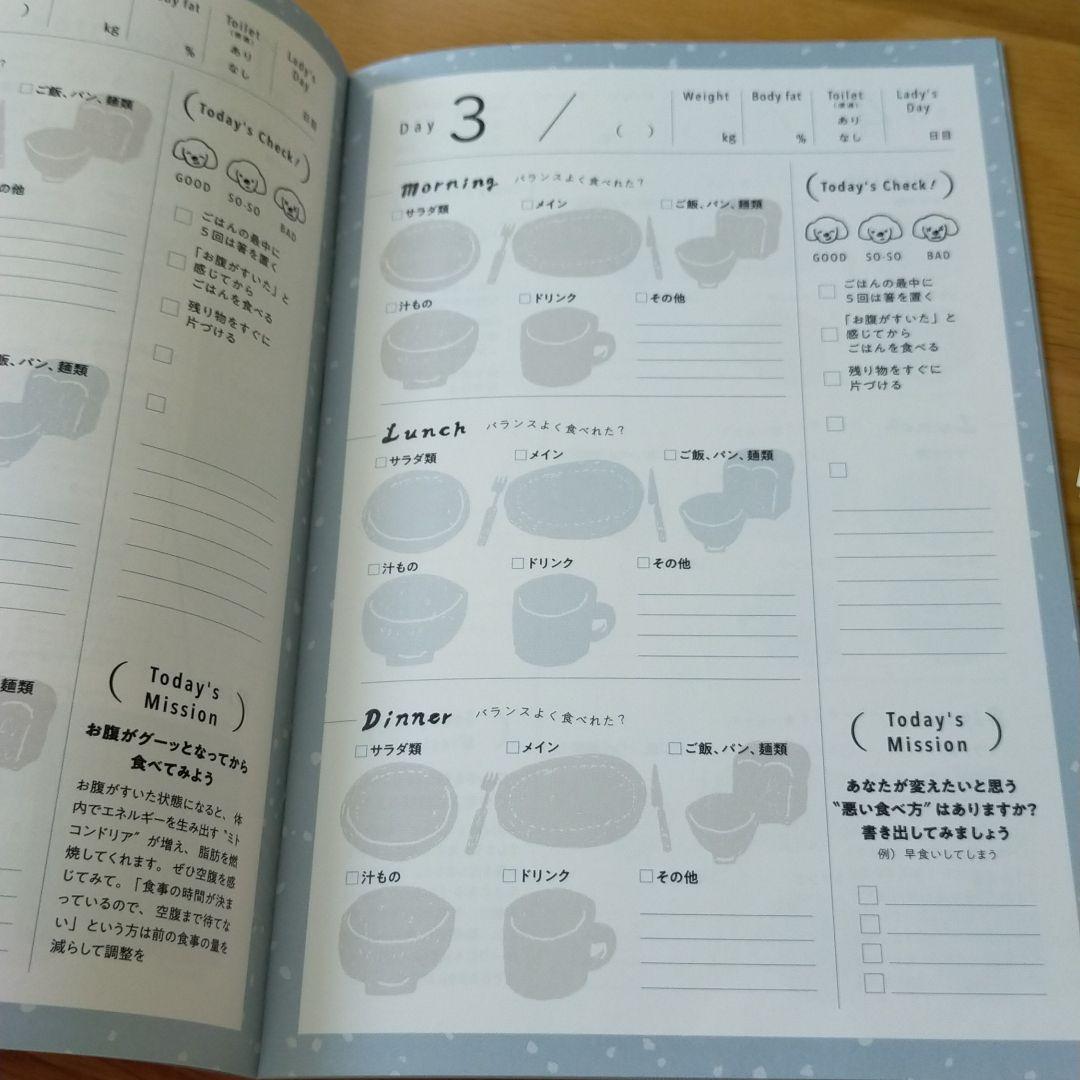 )
kg
dy fat
%
Toilet
(便通)
あり
なし
Lady's
Day
日目
?
ご飯、パン、麺類
の他
飯、パン、麺類
麺類
Today's Check!
GOOD
SO-SO
BAD
ごはんの最中に
5回は箸を置く
「お腹がすいた」と
感じてから
ごはんを食べる
残り物をすぐに
片づける
Today's
Mission
お腹がグーッとなってから
食べてみよう
お腹がすいた状態になると、体
内でエネルギーを生み出す〝ミト
コンドリア〟が増え、脂肪を燃
焼してくれます。ぜひ空腹を感
じてみて。「食事の時間が決ま
っているので、空腹まで待てな
い」という方は前の食事の量を
減らして調整を
Day 3 / ( )
Weight
kg
Body fat
%
Toilet
(便通)
あり
なし
Lady's
Day
日目
Morning バランスよく食べれた?
サラダ類 メイン ご飯、パン、麺類
汁もの ドリンク その他
Lunch バランスよく食べれた?
サラダ類 メイン ご飯、パン、麺類
汁もの ドリンク その他
Dinner バランスよく食べれた?
サラダ類 メイン ご飯、パン、麺類
汁もの ドリンク その他
(Today's Check!)
GOOD SO-SO BAD
ごはんの最中に
5回は箸を置く
「お腹がすいた」と
感じてから
ごはんを食べる
残り物をすぐに
片づける
Today's
Mission
あなたが変えたいと思う
〝悪い食べ方〟はありますか?
書き出してみましょう
例）早食いしてしまう